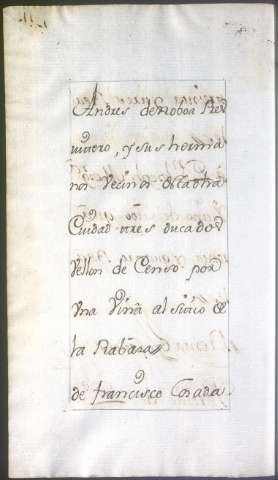 Andres de Noboa Rex
umiero, y sus herma
nos Vecinos desta dha
Ciudad tres ducados
Vellon de Censo por
Una Viña al sitio de
la Rabaza
de francisco Losada